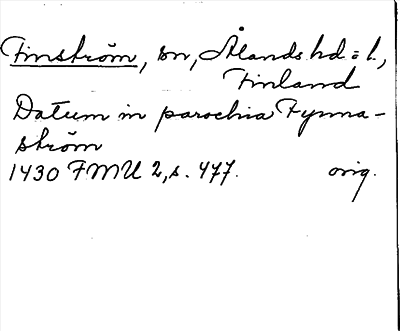 Finström, sn, Ålands hd = l.,
Finland
Datum in parochia Fynna-
ström
1430 FMU 2, s. 477. orig.